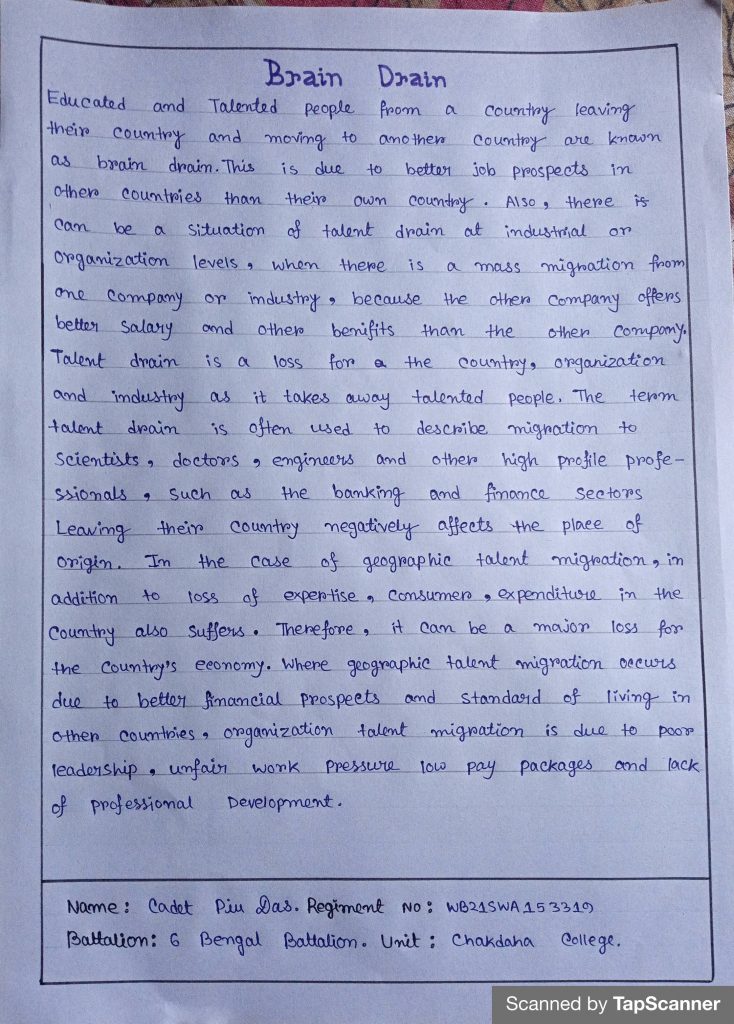 Brain Drain
Educated and Talented people from a country leaving
their country and moving to another country are known
as brain drain. This is due to better job prospects in
other countries than their own country. Also, there is
can be a situation of talent drain at industrial or
organization levels, when there is a mass migration from
one company or industry, because the other company offers
better salary and other benifits than the other company.
Talent drain is a loss for a the country, organization
and industry as it takes away talented people. The term
talent drain is often used to describe migration to
scientists, doctors, engineers and other high profile profe-
ssionals, such as the banking and finance sectors
Leaving their country negatively affects the place of
origin. In the case of geographic talent migration, in
addition to loss of expertise, consumer, expenditure in the
country also suffers. Therefore, it can be a major loss for
the country's economy. Where geographic talent migration occurs
due to better financial prospects and standard of living in
other countries, organization talent migration is due to poor
leadership, unfair work pressure low pay packages and lack
of professional Development.
Name: Cadet Piu Das. Regiment No: WB21SWA153319
Battalion: 6 Bengal Battalion. Unit: Chakdaha College.
Scanned by TapScanner